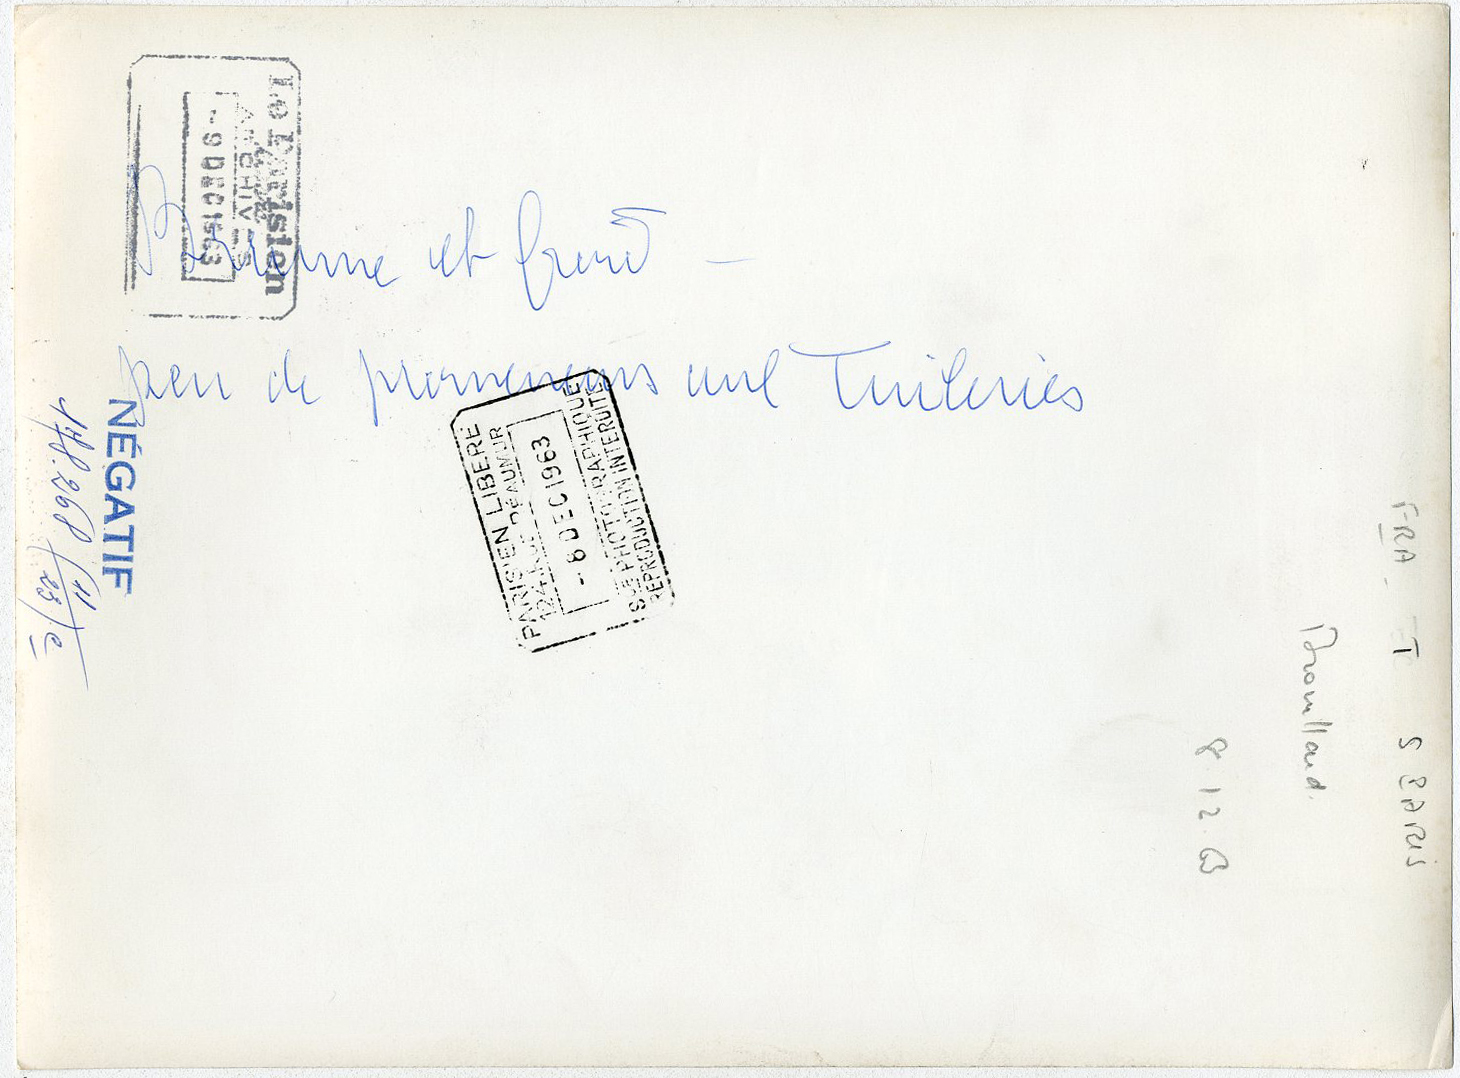 Le Parisien
ARCHIVES
- 9 DEC 1963
Brume et froid -
peu de promeneurs aux Tuileries
NÉGATIF
148.268 (11/23) e
PARISIEN LIBÉRÉ
124, RUE RÉAUMUR
- 8 DEC 1963
SCE PHOTOGRAPHIQUE
REPRODUCTION INTERDITE
FRA
S PARIS
Brouillard.
8 12.63